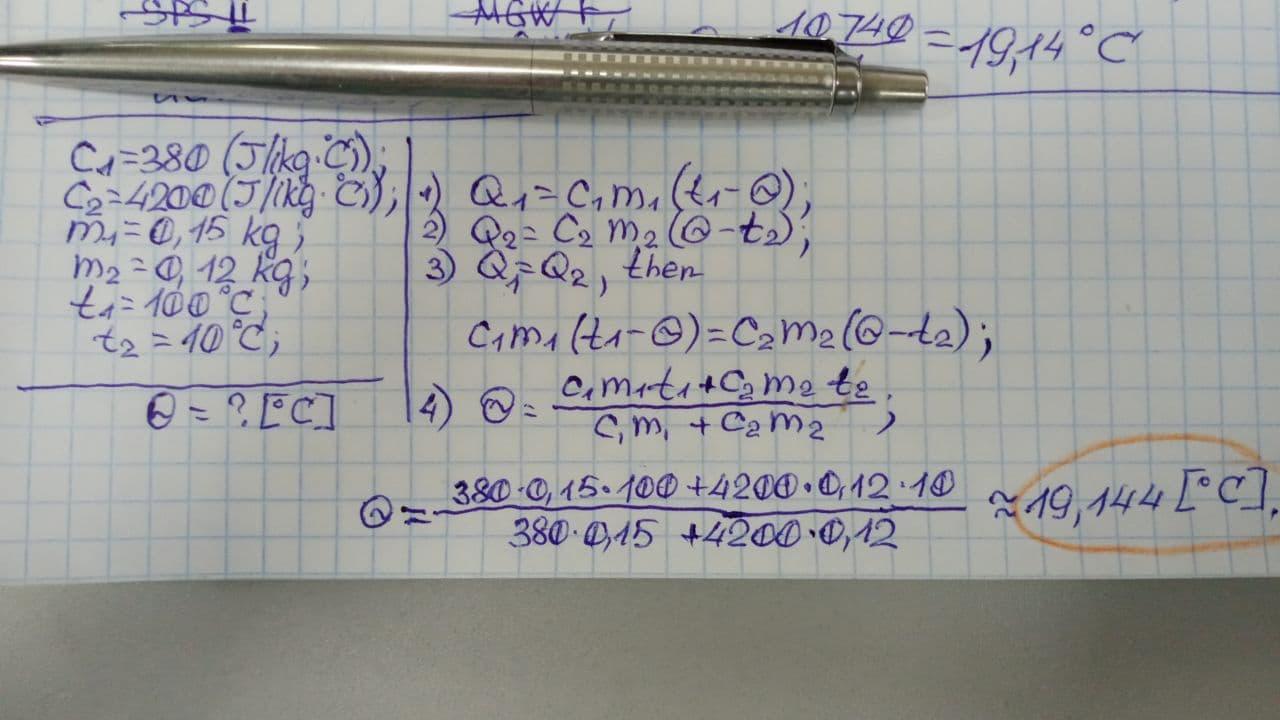 SPS II
MGW
10740 = 19,14 °C
C₁=380 (J/(kg·°C));
C₂=4200(J/(kg·°C));
m₁=0,15 kg;
m₂=0,12 kg;
t₁=100°C;
t₂=10°C;
Θ = ? [°C]
1) Q₁=C₁m₁(t₁-Θ);
2) Q₂=C₂m₂(Θ-t₂);
3) Q₁=Q₂, then
C₁m₁(t₁-Θ)=C₂m₂(Θ-t₂);
4) Θ= (c₁m₁t₁+C₂m₂t₂)/(C₁m₁+C₂m₂);
Θ= (380·0,15·100+4200·0,12·10)/(380·0,15+4200·0,12) ≈19,144 [°C].